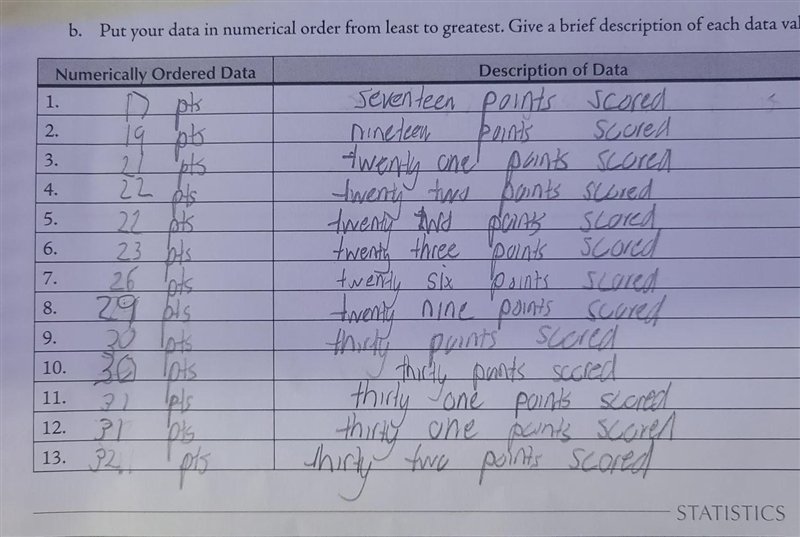 b. Put your data in numerical order from least to greatest. Give a brief description of each data val
Numerically Ordered Data Description of Data
1. 17 pts seventeen points scored
2. 19 pts nineteen points scored
3. 21 pts twenty one points scored
4. 22 pts twenty two points scored
5. 22 pts twenty two points scored
6. 23 pts twenty three points scored
7. 26 pts twenty six points scored
8. 29 pts twenty nine points scored
9. 30 pts thirty points scored
10. 30 pts thirty points scored
11. 31 pts thirty one points scored
12. 31 pts thirty one points scored
13. 32 pts thirty two points scored
STATISTICS